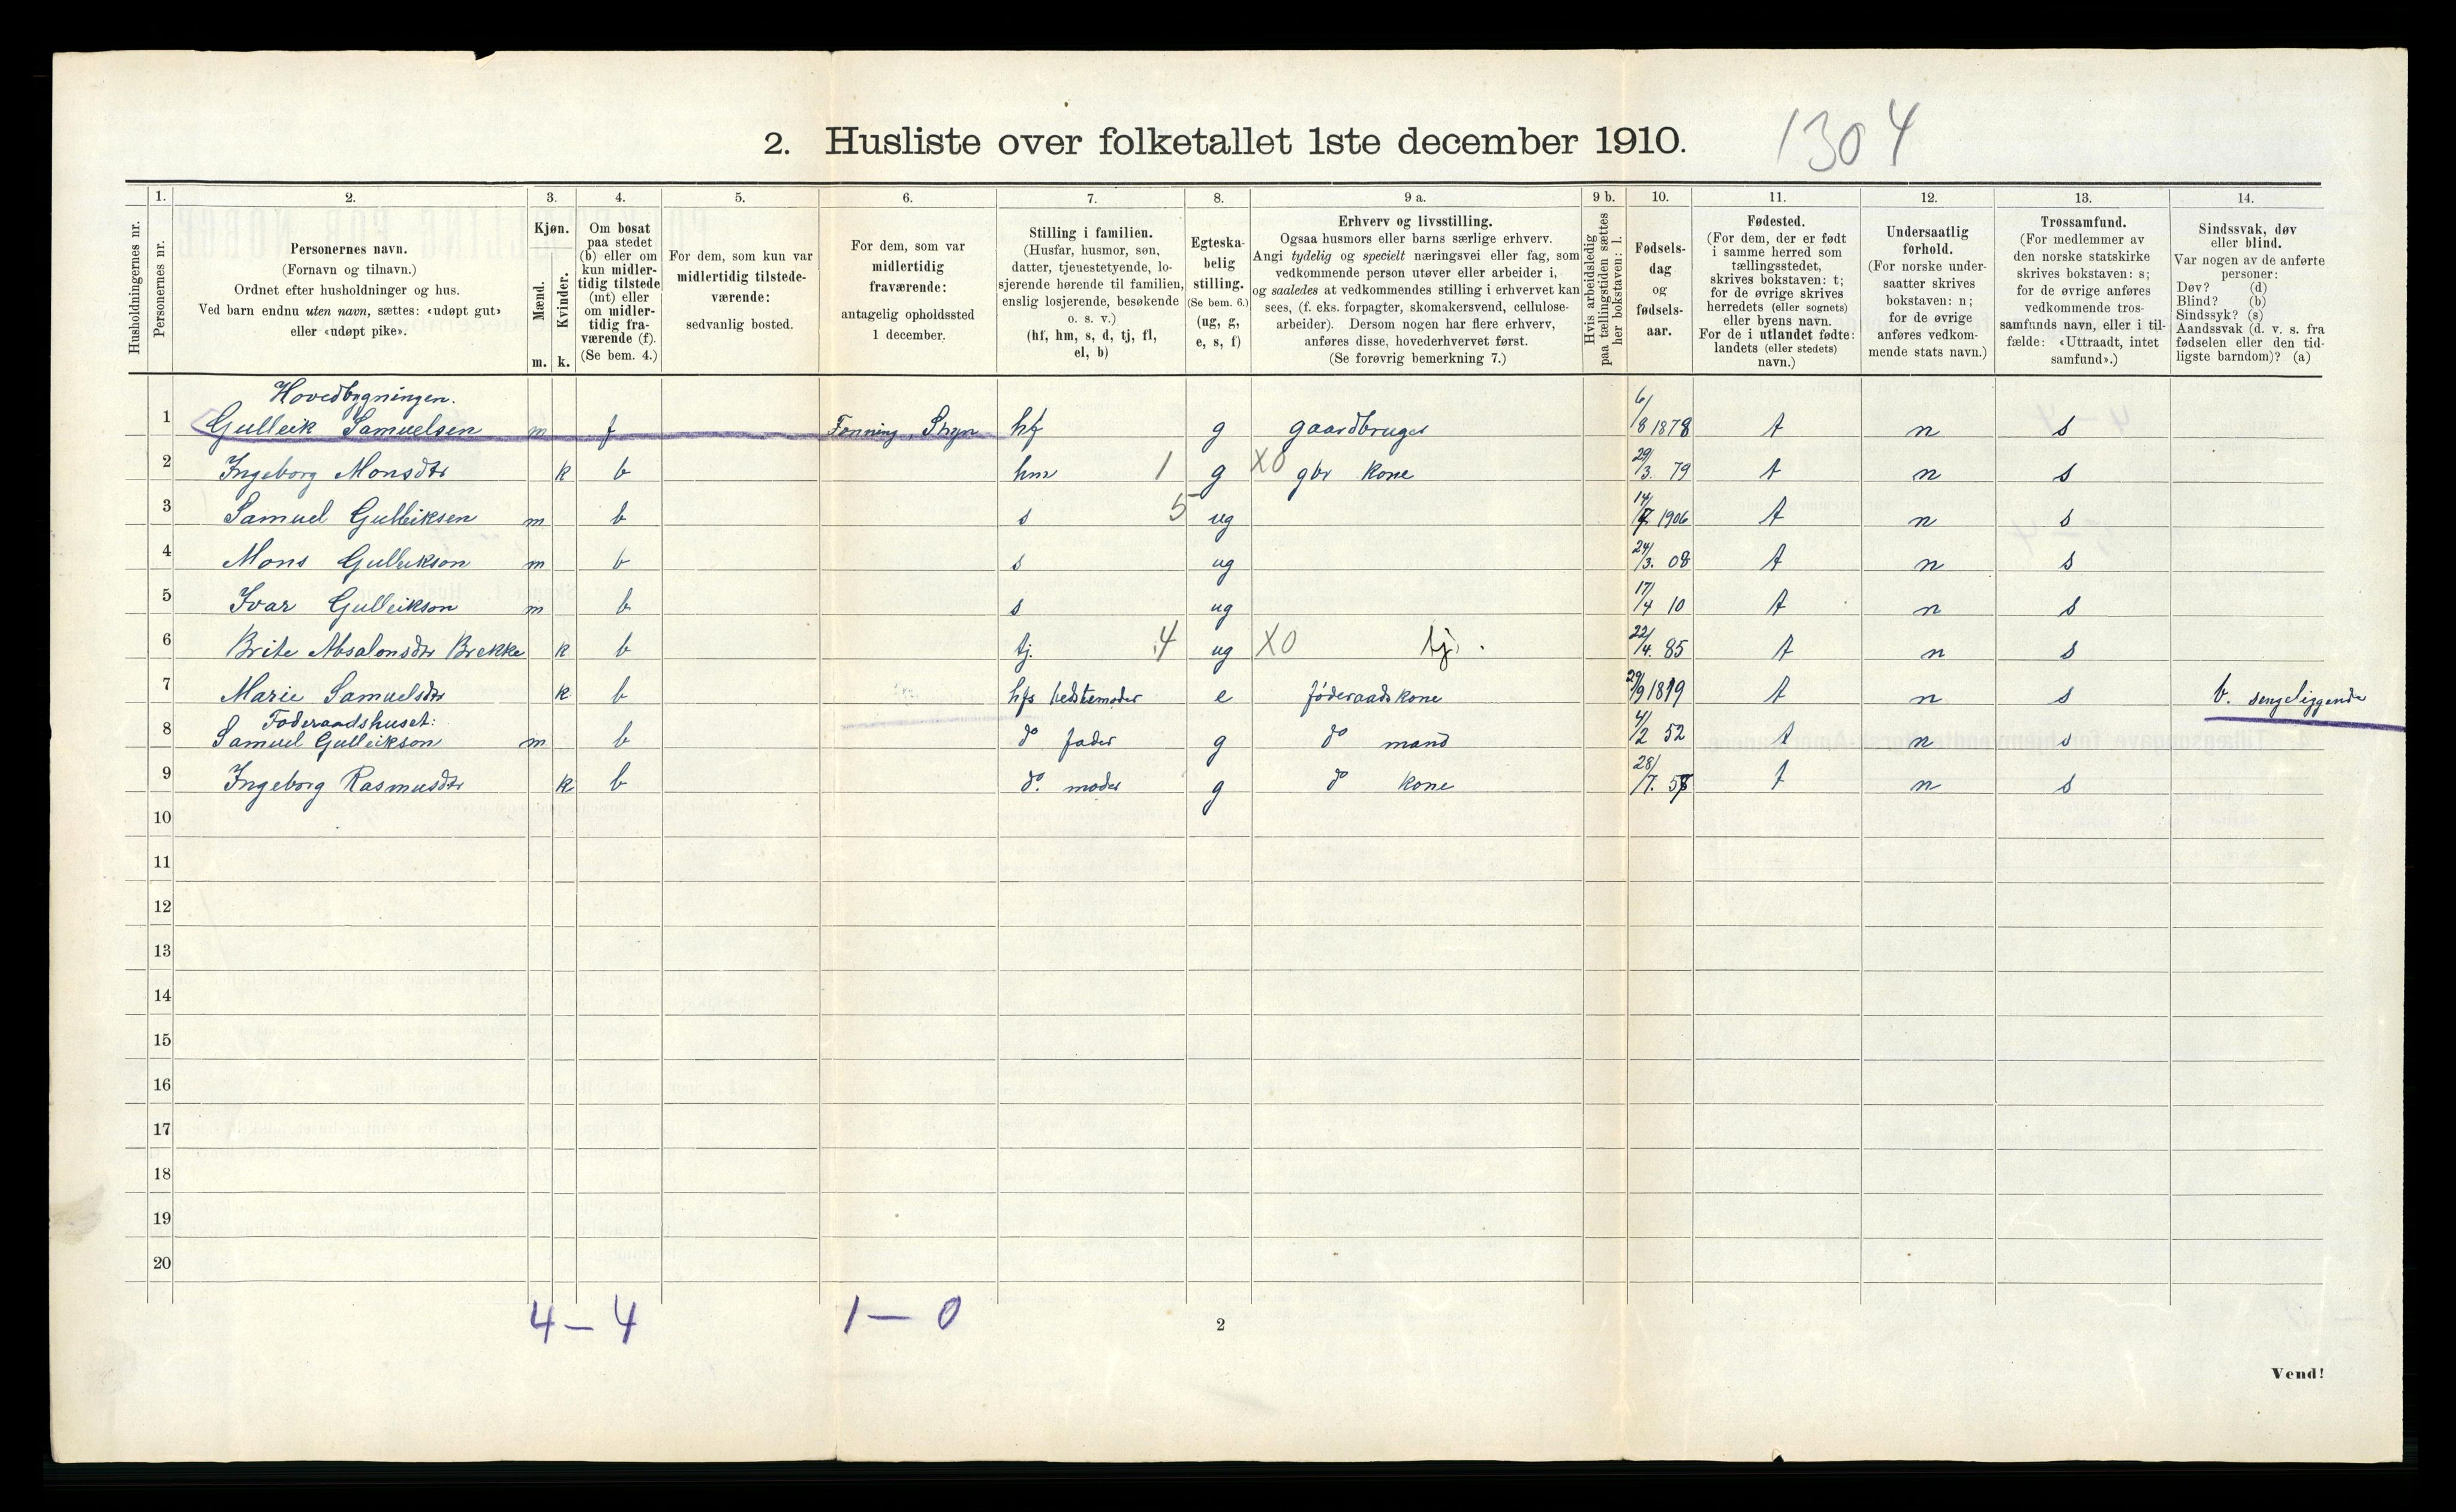 2. Husliste over folketallet 1ste december 1910.
1304
Husholdningernes nr.
1.
Personernes nr.
2.
Personernes navn.
(Fornavn og tilnavn.)
Ordnet efter husholdninger og hus.
Ved barn endnu uten navn, sættes: «udøpt gut»
eller «udøpt pike».
3.
Kjøn.
Mænd.
Kvinder.
m. k.
4.
Om bosat
paa stedet
(b) eller om
kun midler-
tidig tilstede
(mt) eller
om midler-
tidig fra-
værende (f).
(Se bem. 4.)
5.
For dem, som kun var
midlertidig tilstede-
værende:
sedvanlig bosted.
6.
For dem, som var
midlertidig
fraværende:
antagelig opholdssted
1 december.
7.
Stilling i familien.
(Husfar, husmor, søn,
datter, tjenestetyende, lo-
sjerende hørende til familien,
enslig losjerende, besøkende
o. s. v.)
(hf, hm, s, d, tj, fl,
el, b)
8.
Egteska-
belig
stilling.
(Se bem. 6.)
(ug, g,
e, s, f)
9 a.
Erhverv og livsstilling.
Ogsaa husmors eller barns særlige erhverv.
Angi tydelig og specielt næringsvei eller fag, som
vedkommende person utøver eller arbeider i,
og saaledes at vedkommendes stilling i erhvervet kan
sees, (f. eks. forpagter, skomakersvend, cellulose-
arbeider). Dersom nogen har flere erhverv,
anføres disse, hovederhvervet først.
(Se forøvrig bemerkning 7.)
9 b.
Hvis arbeidsledig
paa tællingstiden sættes
her bokstaven: l.
10.
Fødsels-
dag
og
fødsels-
aar.
11.
Fødested.
(For dem, der er født
i samme herred som
tællingsstedet,
skrives bokstaven: t;
for de øvrige skrives
herredets (eller sognets)
eller byens navn.
For de i utlandet fødte:
landets (eller stedets)
navn.)
12.
Undersaatlig
forhold.
(For norske under-
saatter skrives
bokstaven: n;
for de øvrige
anføres vedkom-
mende stats navn.)
13.
Trossamfund.
(For medlemmer av
den norske statskirke
skrives bokstaven: s;
for de øvrige anføres
vedkommende tros-
samfunds navn, eller i til-
fælde: «Uttraadt, intet
samfund».)
14.
Sindssvak, døv
eller blind.
Var nogen av de anførte
personer:
Døv? (d)
Blind? (b)
Sindssyk? (s)
Aandssvak (d. v. s. fra
fødselen eller den tid-
ligste barndom)? (a)
Hovedbygningen.
1 Gulleik Samuelsen m f Stryn hf g gaardbruger 6/8 1878 t n s
2 Ingeborg Monsdtr k b hm 1 g XO gbr kone 29/3. 79 t n s
3 Samuel Gulleiksen m b s 5 ug 14/7 1906 t n s
4 Mons Gulleikson m b s ug 24/3. 08 t n s
5 Ivar Gulleikson m b s ug 17/4 10 t n s
6 Brite Absalonsdtr Brekke k b tj. 4 ug XO tj. 22/4. 85 t n s
7 Marie Samuelsdtr k b hfs bedstemoder e føderaadskone 29/9 1819 t n s b. sengeliggende
Føderaadshuset:
8 Samuel Gulleikson m b do fader g do mand 4/2 52 t n s
9 Ingeborg Rasmusdtr k b do. moder g do kone 28/7. 58 t n s
10
11
12
13
14
15
16
17
18
19
20
4 — 4 1 — 0
2
Vend!